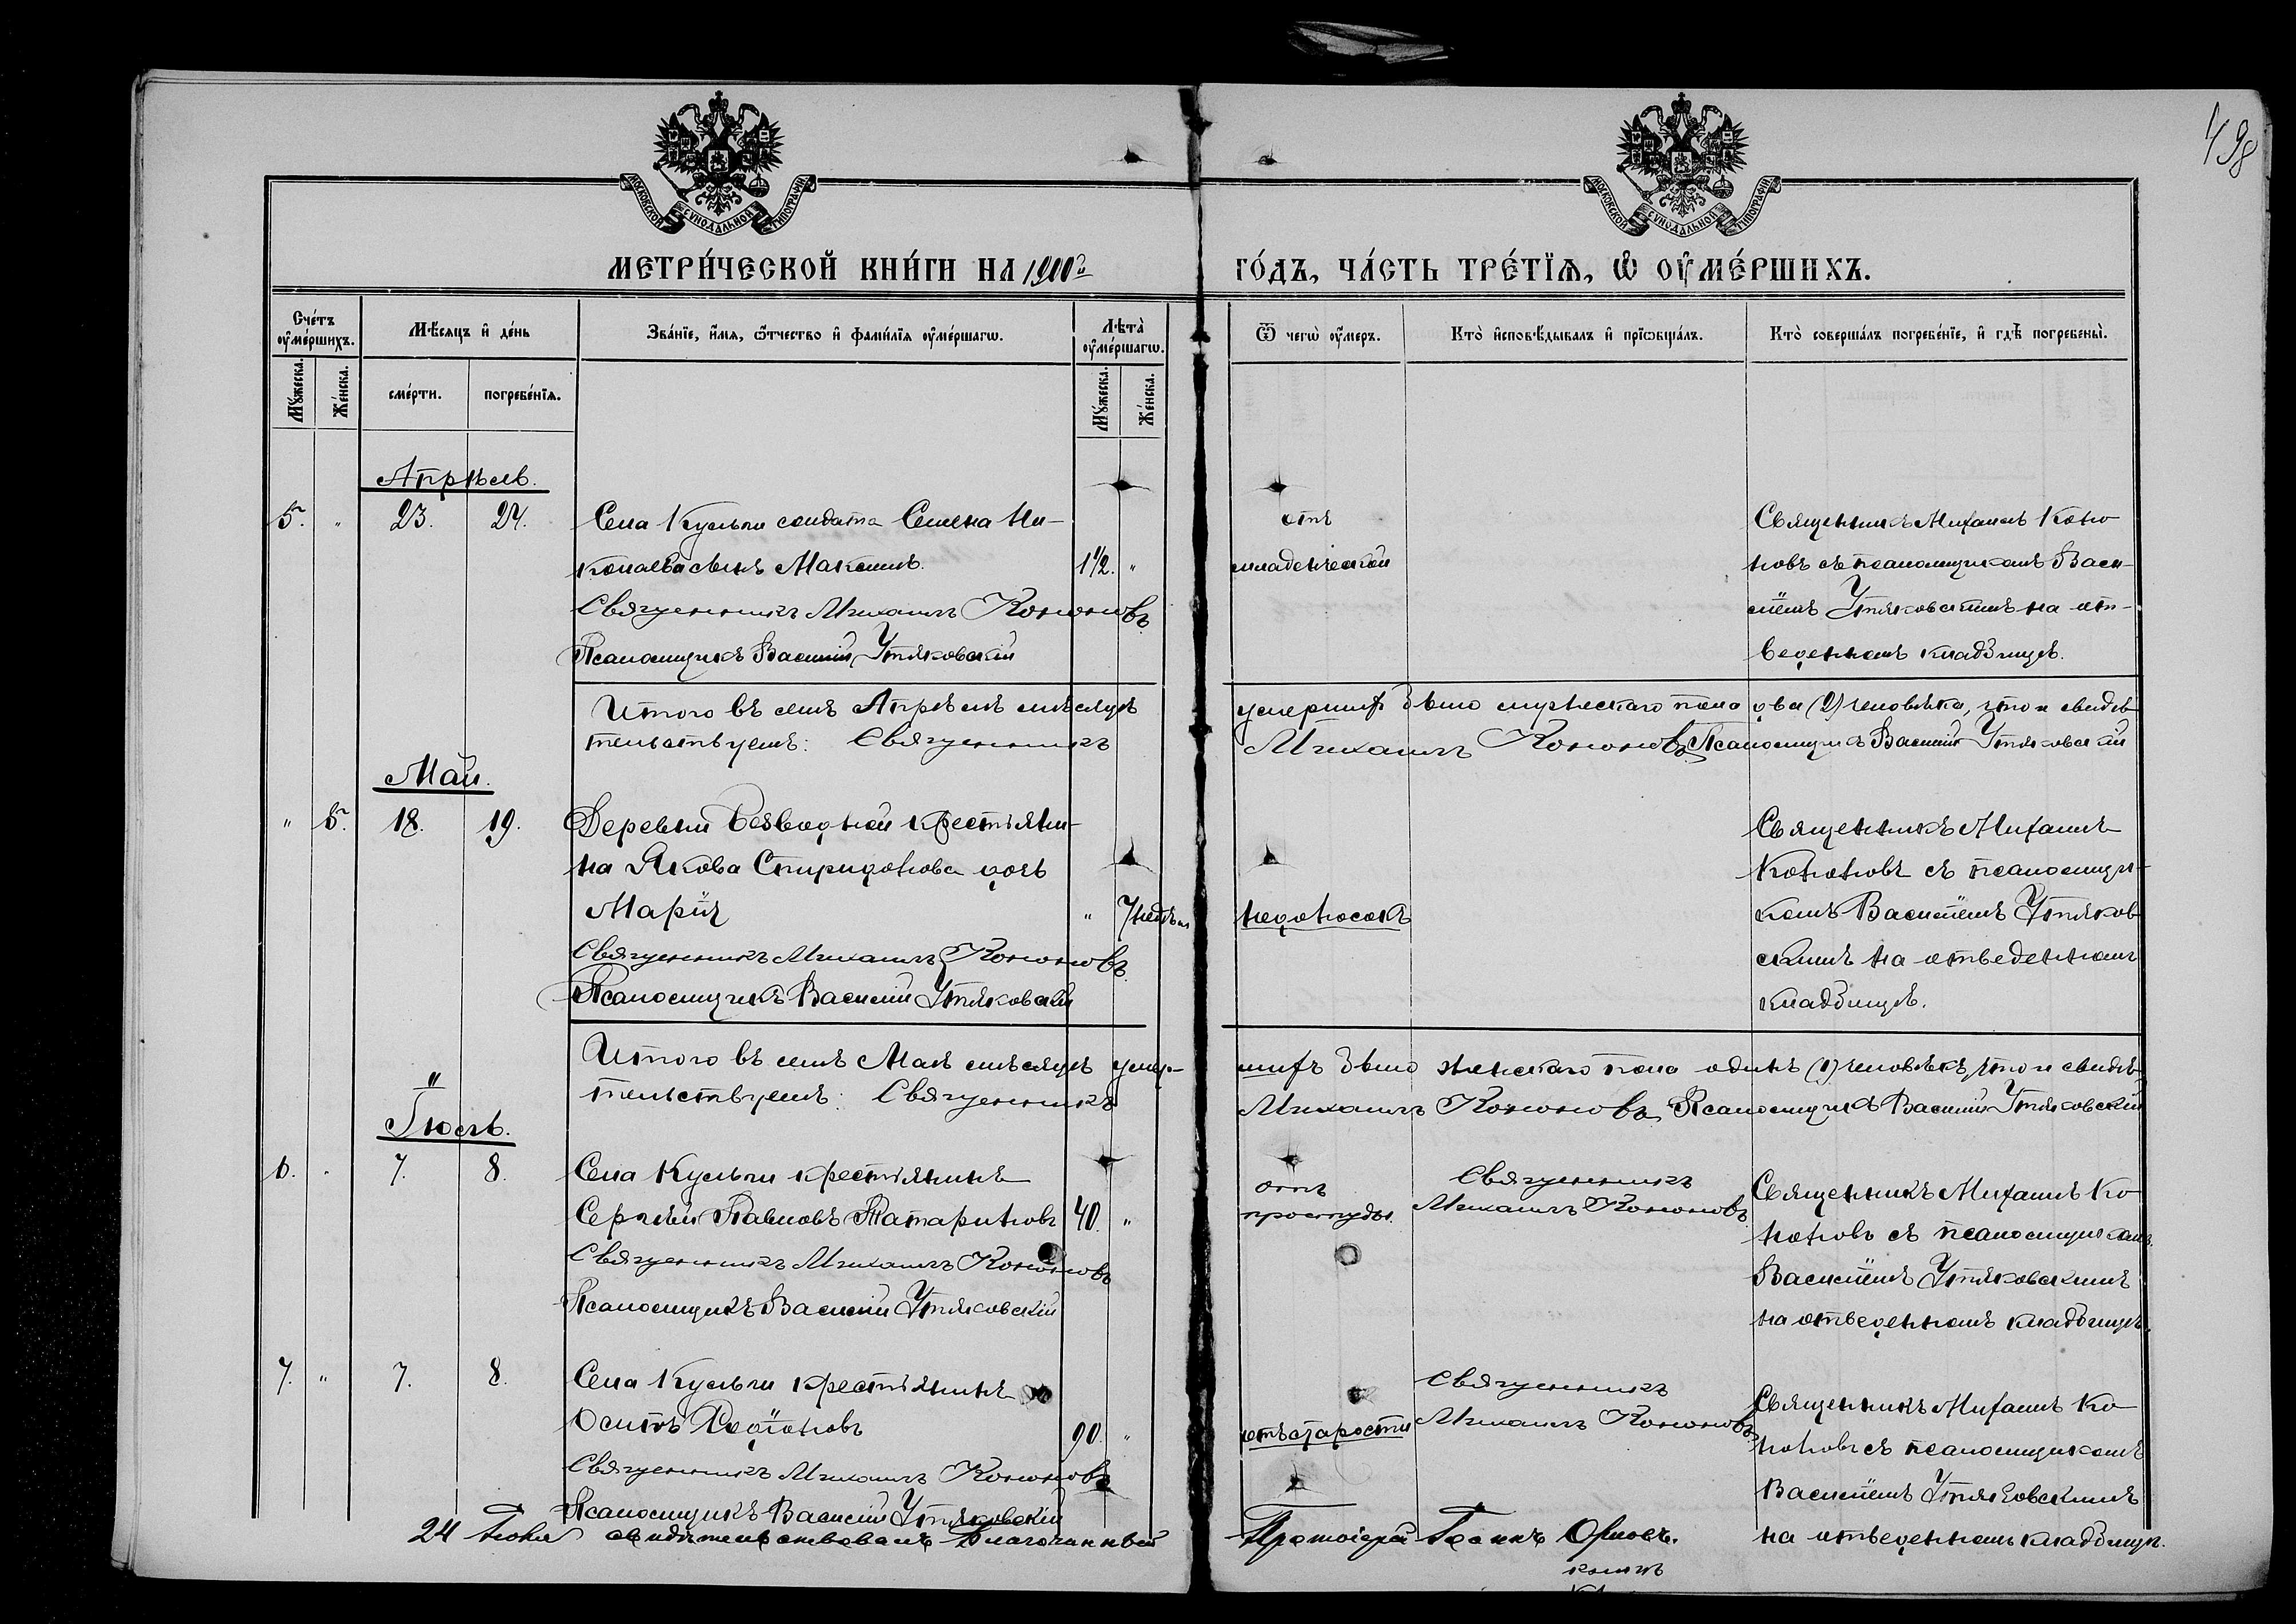 498
МОСКОВСКОЙ СѴНОДАЛЬНОЙ ТИПОГРАФІИ
МОСКОВСКОЙ СѴНОДАЛЬНОЙ ТИПОГРАФІИ
МЕТРИ́ЧЕСКОЙ КНИ́ГИ НА 1900й
ГО́ДЪ, ЧА́СТЬ ТРЕ́ТЇѦ, Ѽ ОУ҆МЕ́РШИХЪ.
Сче́тъ оу҆ме́ршихъ.
Мꙋ́жеска.
Же́нска.
Мѣ́сѧцъ и҆ де́нь
сме́рти.
погребе́нїѧ.
Зва́нїе, и҆́мѧ, ѻ҆́тчество и҆ фами́лїѧ оу҆ме́ршагѡ.
Лѣта̀ оу҆ме́ршагѡ.
Мꙋ́жеска.
Же́нска.
Ѿ чегѡ̀ оу҆́меръ.
Кто̀ и҆сповѣ́дывалъ и҆ прїѡбща́лъ.
Кто̀ соверша́лъ погребе́нїе, и҆ гдѣ̀ погребены̀.
Апрѣль.
5. " 23. 24. Села Кульги солдата Семена Ни-
колаева сынъ Максимъ. 1 1/2. "
Священникъ Михаилъ Кононовъ
Псаломщикъ Василій Утяковскій
отъ
младенческой
Священникъ Михаилъ Коно
новъ съ псаломщикомъ Васи-
ліемъ Утяковскимъ на от-
веденномъ кладбищѣ.
Итого въ семъ Апрѣлѣ мѣсяцѣ умершихъ было мужескаго пола два (2) человѣка, что и свидѣ
тельствуемъ: Священникъ Михаилъ Кононовъ Псаломщикъ Василій Утяковскій
Май.
" 5. 18. 19. Деревни Безводной крестьяни-
на Якова Спиридонова дочь
Марія " 7 недѣль
Священникъ Михаилъ Кононовъ
Псаломщикъ Василій Утяковскій
недоносокъ
Священникъ Михаилъ
Кононовъ съ псаломщи-
комъ Василіемъ Утяков
скимъ на отведенномъ
кладбищѣ.
Итого въ семъ Маѣ мѣсяцѣ умер-
шихъ было женскаго пола одинъ (1) человѣкъ, что и свидѣ-
тельствуемъ: Священникъ Михаилъ Кононовъ Псаломщикъ Василій Утяковскій
"
Іюль.
6. " 7. 8. Села Кульги крестьянинъ
Сергѣй Павловъ Татариновъ 40. "
Священникъ Михаилъ Кононовъ
Псаломщикъ Василій Утяковскій
отъ
простуды.
Священникъ
Михаилъ Кононовъ
Священникъ Михаилъ Ко
ноновъ съ псаломщикомъ
Василіемъ Утяковскимъ
на отведенномъ кладбищѣ.
7. " 7. 8. Села Кульги крестьянинъ
Осипъ Родіоновъ 90. "
Священникъ Михаилъ Кононовъ
Псаломщикъ Василій Утяковскій
отъ старости
Священникъ
Михаилъ Кононовъ
Священникъ Михаилъ Ко
ноновъ съ псаломщикомъ
Василіемъ Утяковскимъ
на отведенномъ кладбищѣ.
24 Іюля свидѣтельствовалъ Благочинный Протоіерей Іоаннъ Орловъ.